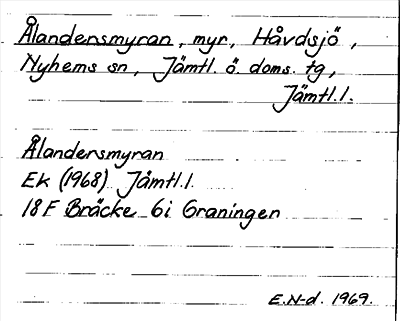 Ålandensmyran, myr, Håvdsjö,
Nyhems sn, Jämtl. ö. doms. tg,
Jämtl.l.
Ålandensmyran
Ek (1968) Jämtl.l.
18F Bräcke 6i Graningen
E.N-d. 1969.